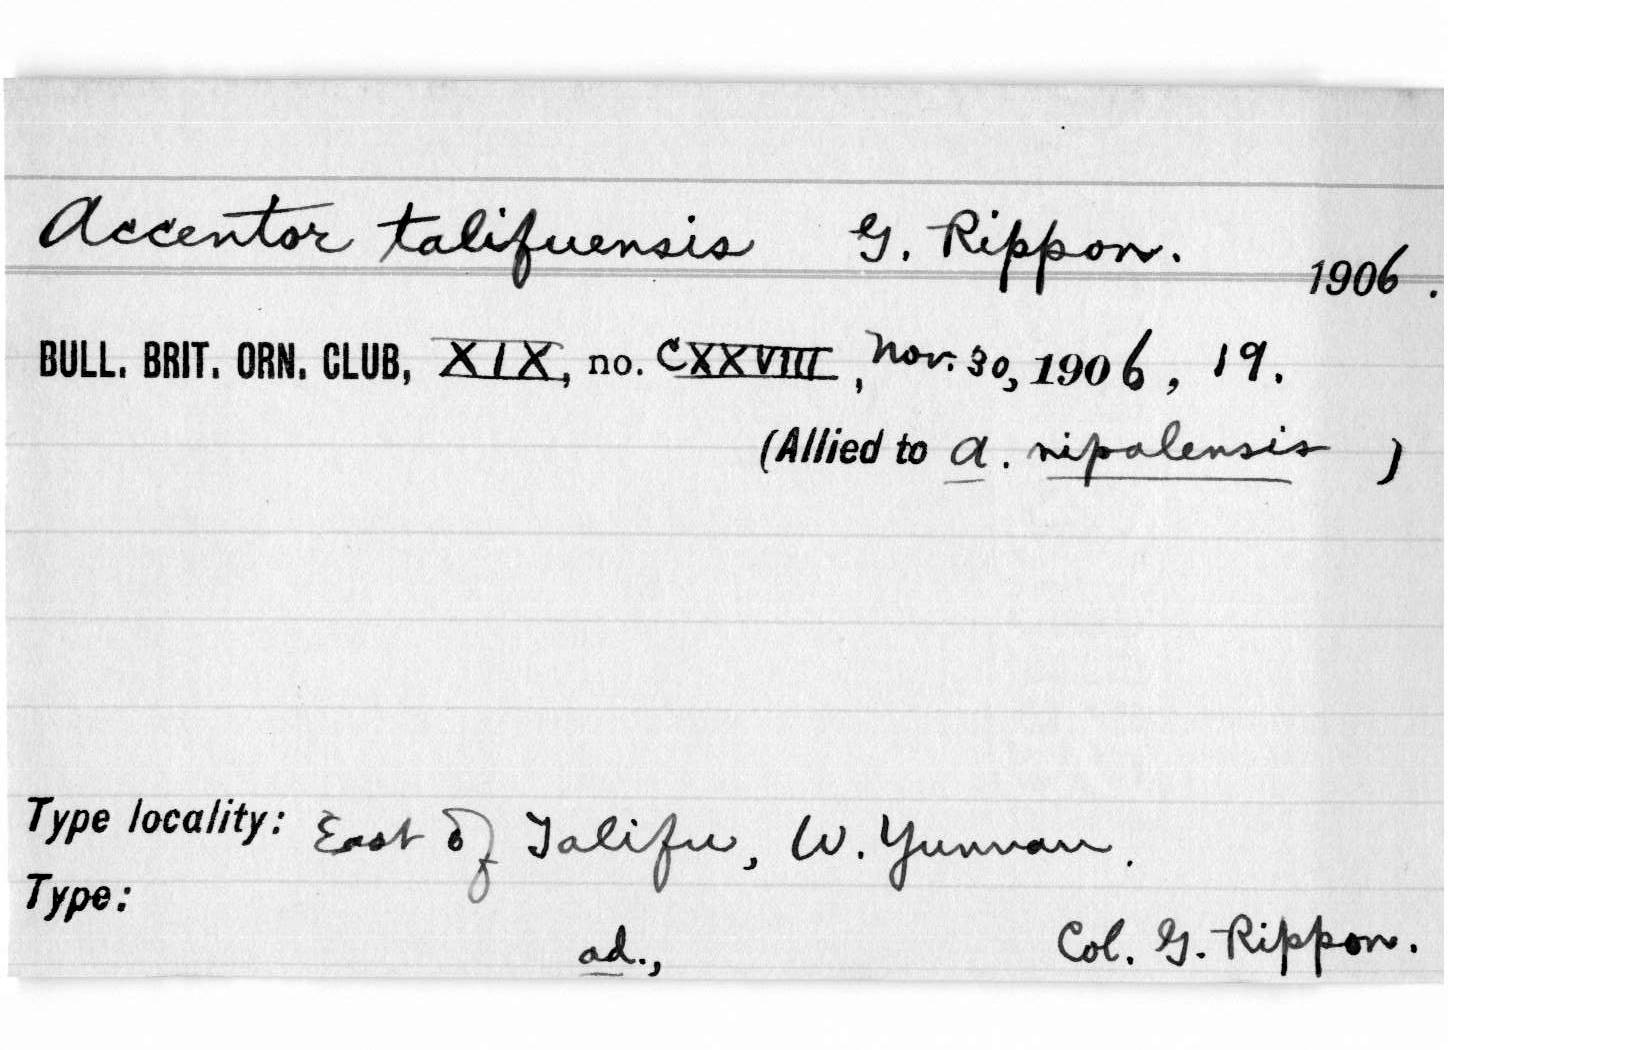 Accentor talifuensis G. Rippon. 1906.
BULL. BRIT. ORN. CLUB, XIX, no. CXXVIII, Nov. 30, 1906, 19.
(Allied to A. nipalensis )
Type locality: East of Talifu, W. Yunnan.
Type:
ad., Col. G. Rippon.